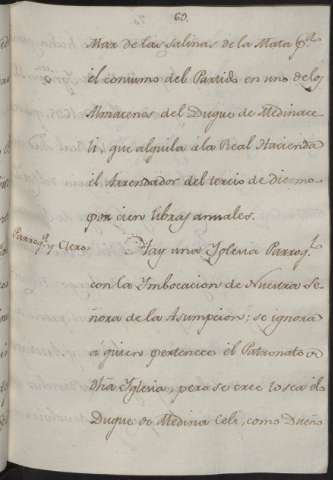 69.
Mar de las Salinas de la Mata pª
el consumo del Partido en uno de los
Almacenes del Duque de Medinace
li, que alquila a la Real Hacienda
el Arrendador del tercio de diezmo
por cien libras annales.
Parroqˡ y Clero. Hay una Iglesia Parroqˡ
con la Imbocacion de Nuestra Se
ñora de la Asumpcion; se ignora
a quien pertenece el Patronato de
dha Iglesia, pero se cree toca al
Duque de Medina Celi, como Dueño